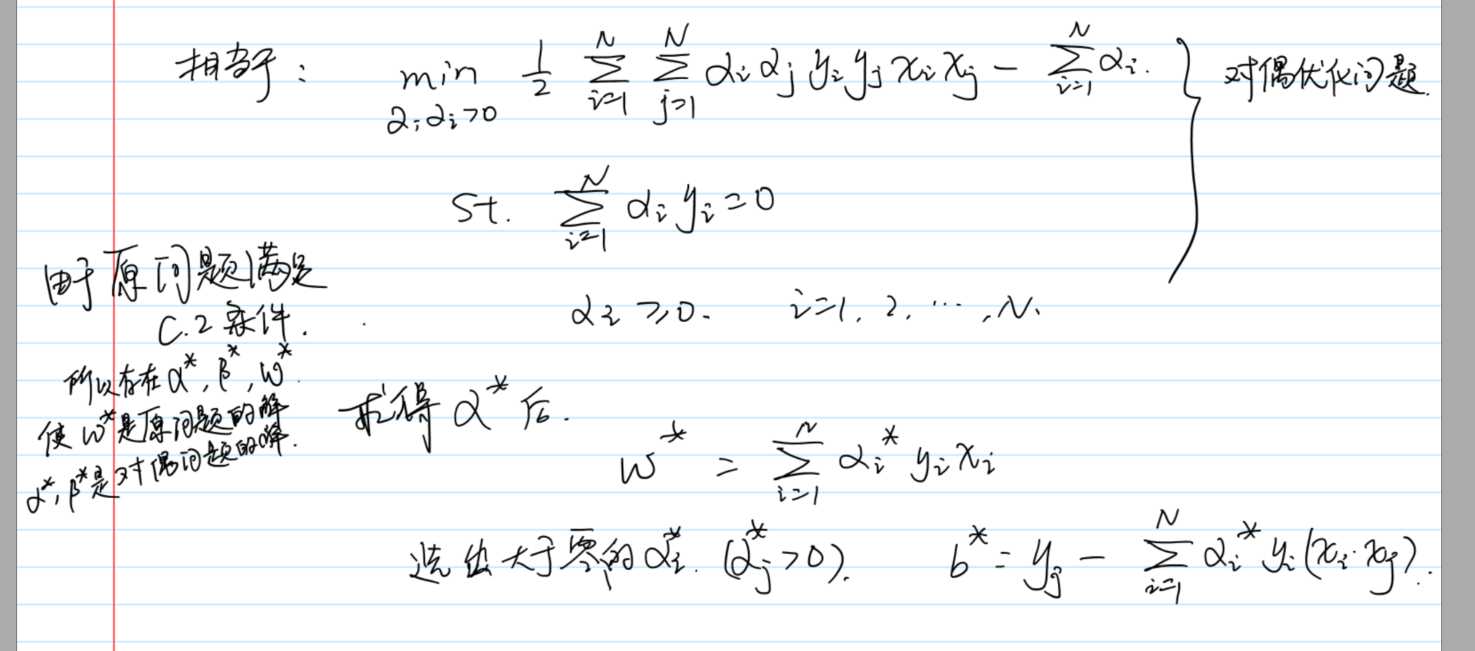 相当于: min 1/2 Σ_{i=1}^{N} Σ_{j=1}^{N} α_i α_j y_i y_j x_i x_j − Σ_{i=1}^{N} α_i. } 对偶优化问题.
α_i α_i >0
St. Σ_{i=1}^{N} α_i y_i = 0
α_i ≥ 0. i=1, 2, ⋯, N.
由于原问题满足
C.2 条件.
所以存在 α*, β*, w*.
使 w* 是原问题的解
α*, β* 是对偶问题的解.
求得 α* 后.
w* = Σ_{i=1}^{N} α_i* y_i x_i
选出大于零的 α_i*. (α_j* > 0). b* = y_j − Σ_{i=1}^{N} α_i* y_i (x_i · x_j).